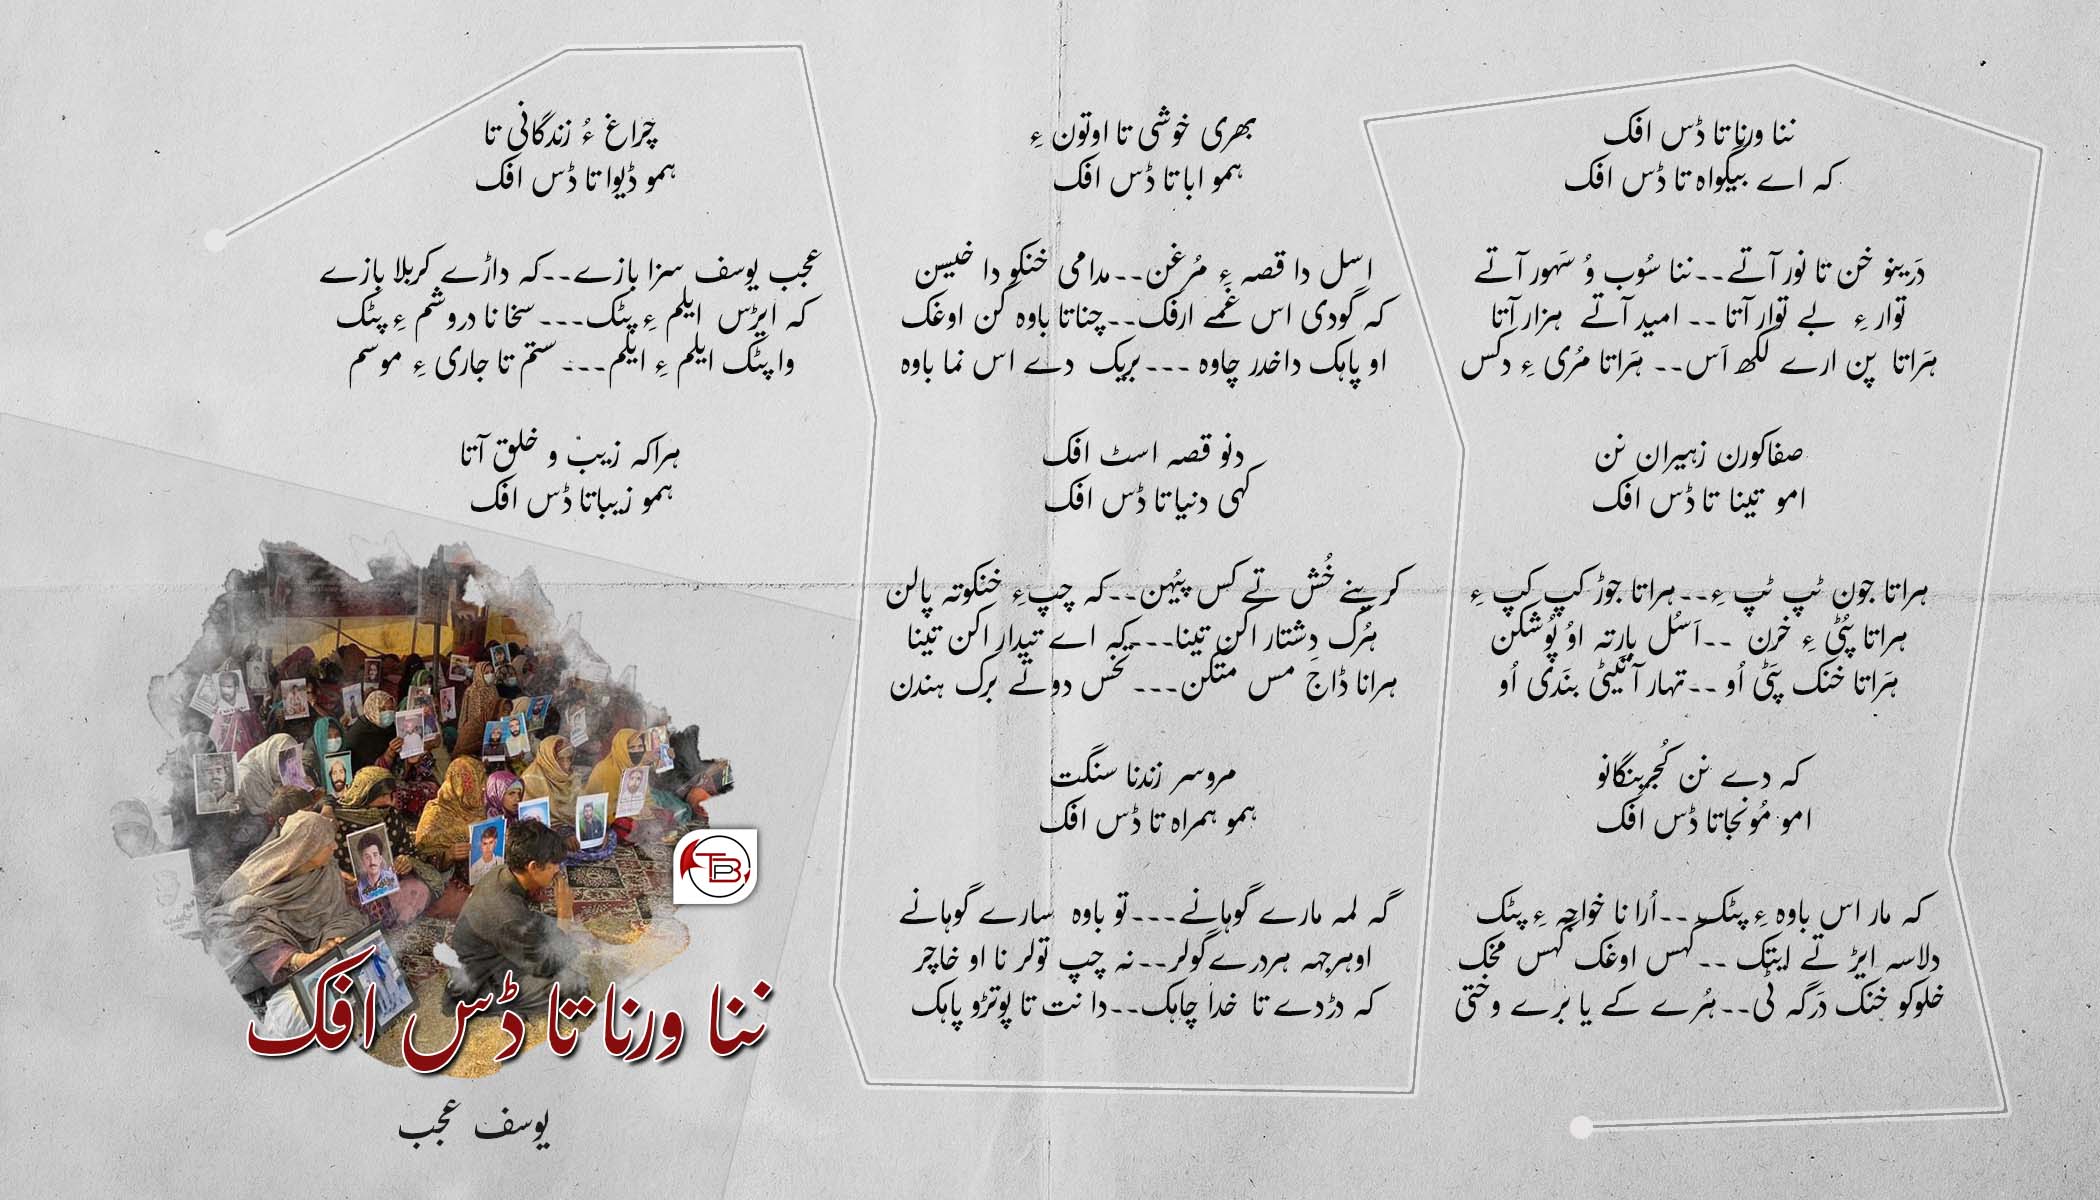 ننا ورنا تا ڈس افک
کہ اے بیگواہ تا ڈس افک
دَرینو خن تا نور آتے۔۔ننا سُوب وُ سَہور آتے
توار ءِ بے توار آتا ۔۔ امید آتے ہزار آتا
ہَراتا پن ارے لکھ اَس۔۔ ہَراتا مُری ءِ دکس
صفاکورن زہیران نن
امو تینا تا ڈس افک
ہراتا جون ٹپ ٹپ ءِ۔۔ہراتا جوڑ کپ کپ ءِ
ہراتا پٹی ءِ خرن ۔۔اَسُل بارتہ اوُ پُوشکن
ہَراتا خنک پَٹی اُو ۔۔تہار آتیٹی بندی اُو
کہ دے نن کُجربنگانو
امو مُونجاتا ڈس افک
کہ مار اس باوہ ءِ پٹک ۔۔اُرا نا خواجہ ءِ پٹک
دلاسہ ایڑ تے ایتک ۔۔گہس اوغک گہس مخک
خلوکو خنک دَرگہ ٹی۔۔ہُرے کے یا برے وختی
بھری خوشی تا اوتون ءِ
ہمو ابا تا ڈس افک
اسل دا قصہ ءِ مُرغن۔۔مدامی خنکو دا خیسن
کہ گودی اس غمے ارفک۔۔چناتا باوہ کن اوغک
او پاہک داخدر چاوہ ۔۔۔بریک دے اس نما باوہ
دنو قصہ اسٹ افک
کہی دنیا تا ڈس افک
کرینے خُش تے کس پیُہن۔۔کہ چپ ءِ خنکوتہ پالن
ہُرک دِشتار اکن تینا۔۔۔کہ اے تیدار اکن تینا
ہرانا ڈاج مس متکن۔۔۔نخس دوتے برک ہندن
مروسر زندنا سنگت
ہمو ہمراہ تا ڈس افک
گہ لمہ مارے گوہانے۔۔۔تو باوہ سارے گوہانے
اوہرجہہ ہردرے گولر۔۔نہ چپ تولر نا او خاچر
کہ دڑدے تا خدا چاہک۔۔دا نت تا پوترو پاہک
چَراغ ءُ زندگانی تا
ہمو ڈیوا تا ڈس افک
عجب یوسف سزا بازے۔۔کہ داڑے کربلا بازے
کہ ایڑس ایلم ءِ پٹک۔۔۔سخا نا دروشم ءِ پٹک
وا پٹک ایلم ءِ ایلم۔۔۔ ستم تا جاری ءِ موسم
ہراکہ زیب و خلق آتا
ہمو زیباتا ڈس افک
TBP
ننا ورنا تا ڈس افک
یوسف عجب